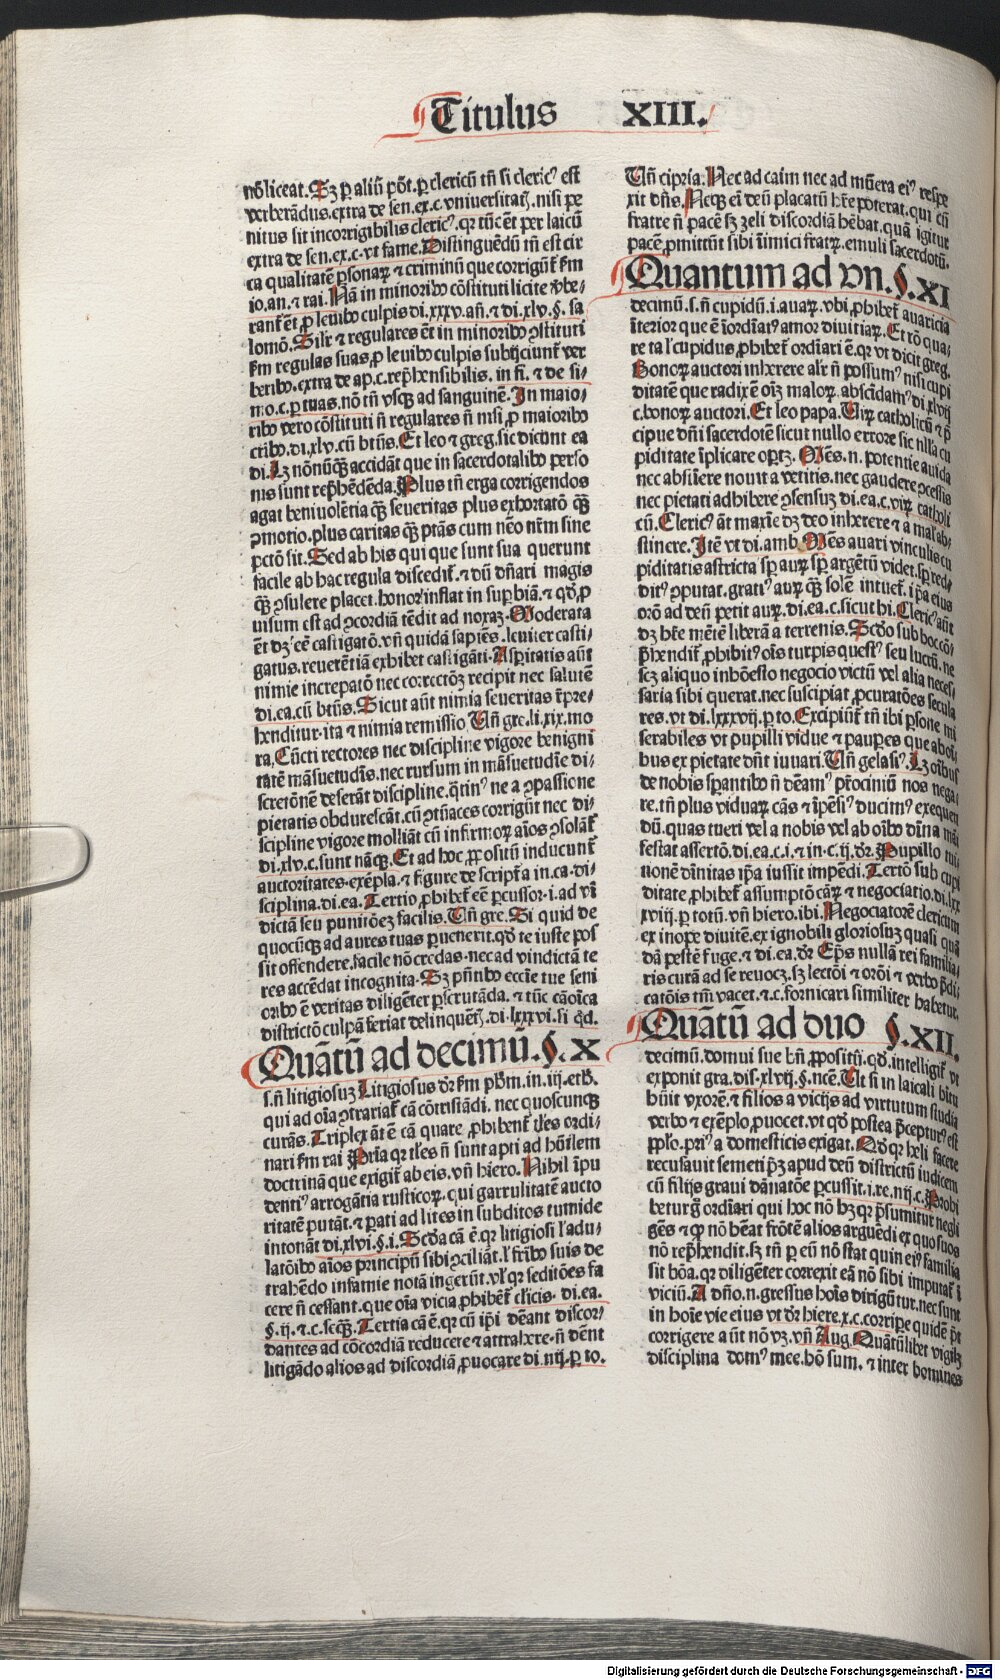 Titulus XIII.
nõ liceat. Sz ꝑ aliũ põt. ꝑ clericũ tñ si clericꝰ est
verberãdus. extra de sen. ex. c. vniuersitatꝭ. nisi pe
nitus sit incorrigibilis clericꝰ. qꝛ tũc ẽt per laicũ
extra de sen. ex. c. vt fame. Distinguẽdũ tñ est cir
ca qualitatẽ ꝑsonaꝝ ⁊ criminũ que corrigũt᷑ ẜm
io. an. ⁊ rai. Nã in minoribꝰ cõstituti licite v̾be-
rant᷑ ẽt ꝓ leuibꝰ culpis di. xxxv. añ. ⁊ di. xlv. §. sa
lomõ. Silr̃ ⁊ regulares ẽt in minoribꝰ ꝯstituti
ẜm regulas suas, ꝓ leuibꝰ culpis subijciunt᷑ ver
beribꝰ. extra de ap. c. rep̃hensibilis. in fi. ⁊ de si-
mo. c. ꝑ tuas. nõ tñ vsqꝫ ad sanguinẽ. In maio-
ribꝰ vero cõstituti ñ regulares ñ nisi ꝓ maioribꝰ
cribꝰ. di. xlv. cũ btũs. Et leo ⁊ greg. sic dicunt ea
di. Lꝫ nõnũqꝫ accidãt que in sacerdotalibꝰ perso
nis sunt rep̃hẽdẽda. Plus tñ erga corrigendos
agat beniuolẽtia qꝫ̃ seueritas plus exhortatõ qꝫ̃
ꝯmotio. plus caritas qꝫ̃ ptãs cum nẽo nr̃m sine
pctõ sit. Sed ab his qui que sunt sua querunt
facile ab hac regula disceditᷣ. ⁊ dũ dñari magis
qꝫ̃ ꝯsulere placet. honor inflat in suꝑbiã. ⁊ qđ, ꝓ
uisum est ad ꝯcordiã tẽdit ad noxaꝫ. Moderata
ẽt dꝫ eẽ castigatõ. vñ quidã sapiẽs. leuiter casti-
gatus. reuerẽtiã exhibet castigãti. Asꝑitatis aũt
nimie increpatõ nec correctõꝫ recipit nec salutẽ
di. ea. cũ btũs. Sicut aũt nimia seueritas r̃pre-
hẽnditur. ita ⁊ nimia remissio Uñ gre. li. xix. mo
ra. Cũcti rectores nec discipline vigore benigni
tatẽ mãsuetudĩs. nec rursum in mãsuetudie di-
scretõnẽ deserãt discipline. q̃tinꝰ ne a ꝯpassione
pietatis obdurescãt. cũ ꝯtũaces corrigũt nec di-
scipline vigore molliãt cũ infirmoꝝ aĩos ꝯsolãt᷑
di. xlv. c. sunt nãqꝫ. Et ad hoc ꝓpositũ inducunt᷑
auctoritates. exẽpla. ⁊ figure de script̾a in. ca. di-
sciplina. di. ea. Tertio, ꝓhibet᷑ eẽ ꝑcussor. i. ad vĩ
dictã seu punitõeꝫ facilis. Uñ gre. Si quid de
quocũqꝫ ad aures tuas ꝑuenerit. qđ te iuste pos
sit offendere. facile nõ credas. nec ad vindictã te
res accẽdat incognita. Sꝫ p̃ntibꝰ eccĩe tue seni
oribꝰ ẽ veritas diligẽter ꝑscrutãda. ⁊ tũc cãoĩca
districtõ culpã feriat delinquẽtꝭ. di. lxxxvi. si qđ.
Quãtũ ad decimũ. §. X
s. ñ litigiosuꝫ Litigiosus dr̃ ẜm pbm̃. in. iij. etħ.
qui ad oĩa ꝯtrariat᷑ cã cõtristãdi. nec quoscunqꝫ
curãs. Triplex ãt ẽ cã quare, ꝓhibent᷑ tĩes ordi-
nari ẜm rai Pria qꝛ tĩes ñ sunt apti ad hũilem
doctrinã que exigit᷑ ab eis. vñ hiero. Nihil ĩpu
dentiꝰ arrogãtia rusticoꝝ. qui garrulitatẽ aucto
ritatẽ putãt. ⁊ ꝑati ad lites in subditos tumide
intonãt di. xlvi. §. i. Scđa cã ẽ. qꝛ litigiosi ſ adu-
latõibꝰ aĩos principũ sibi ꝯciliãt. ſ frĩbꝰ suis de
trahẽdo infamie notã ingerũt. vꝉ qꝛ seditões fa
cere ñ cessant. que oĩa vicia ꝓhibẽt᷑ cĩicis. di. ea.
§. ij. ⁊ c. seqꝫ. Tertia cã ẽ. qꝛ cũ ipĩ dẽant discor-
dantes ad cõcordiã reducere ⁊ attrahere. ñ dẽnt
litigãdo alios ad discordiã, ꝓuocare di. nij. ꝑ to.
Uñ cipria. Nec ad caim nec ad mũera eiꝰ respe
xit dñs. Neqꝫ eĩ deũ placatũ hr̃e poterat. qui cũ
fratre ñ pacẽ sꝫ zeli discordiã hẽbat. quã igitur
pacẽ, ꝓmittũt sibi ĩimici fratꝝ. emuli sacerdotũ.
Quantum ad vn. §. XI
decimũ. s. ñ cupidũ. i. auaꝝ. vbi, ꝓhibet᷑ auaricia
ĩterior que ẽ ĩordĩatꝰ amor diuitiaꝝ. Et rõ qua-
re taĩ cupidus, ꝓhibet᷑ ordĩari ẽ. qꝛ vt dicit greg.
Bonoꝝ auctori inherere alr̃ ñ possumꝰ nisi cupi
ditatẽ que radix ẽ oĩꝫ maloꝝ. abscidamꝰ di. xlvij
c. bonoꝝ auctori. Et leo papa. Uirꝝ catholicũ ⁊ p̃
cipue dñi sacerdotẽ sicut nullo errore sic nĩla cu
piditate ĩplicare oportꝫ. Mẽs. n. potentie auida
nec abstĩere nouit a vetitis. nec gaudere ꝯcessis
nec pietati adhibere ꝯsensuꝫ di. ea. c. viꝝ catholi
cũ. Clericꝰ ãt maxĩe dꝫ deo inherere ⁊ a mal ab-
stincre. Itẽ vt di. amb. Mẽs auari vinculis cu
piditatis astricta sꝑ auꝝ sꝑ argẽtũ videt. sꝑ red-
ditꝰ ꝯputat. gratiꝰ auꝝ qꝫ̃ solẽ intuet᷑. ipã eius
orõ ad deũ petit auꝝ. di. ea. c. sicut hi. Clericꝰ aũt
dꝫ hr̃e mẽtẽ liberã a terrenis. Scđo sub hoc cõ-
p̃hendit᷑, ꝓhibitꝰ oĩs turpis questꝰ seu lucrũ. ne
scꝫ aliquo inhõesto negocio victũ vel alia neces-
saria sibi querat. nec suscipiat, ꝓcuratões secula
res. vt di. lxxxvij. ꝑ to. Excipiũt᷑ tñ ibi ꝑsone mi
serabiles vt pupilli vidue ⁊ pauꝑes que ab oĩ
bus ex pietate dñt iuuari. Uñ gelasiꝰ. Lꝫ oĩbus
de nobis sꝑantibꝰ ñ dẽamꝰ pr̃ociniũ nos nega-
re. tñ plus viduaꝝ cãs ⁊ ĩpẽsiꝰ ducimꝰ exequen
dũ. quas tueri vel a nobis vel ab oĩbꝰ dĩna mãi
festat assertõ. di. ea. c. i. ⁊ in. c. ij. dr̃. Pupillo tui
tionẽ dĩnitas ipã iussit impẽdi. Tertõ sub cupi
ditate, ꝓhibet᷑ assumptõ cãꝝ ⁊ negociatio. di. lxx
xviij. ꝑ totũ. vñ hiero. ibi. Negociatorẽ clericum
ex inope diuitẽ. ex ignobili gloriosuꝫ quasi quã
dã pestẽ fuge. ⁊ di. ea. dr̃ Ep̃s nullã rei familia-
ris curã ad se reuocꝫ. sꝫ lectõi ⁊ orõi ⁊ verbo p̃di-
catõis tm̃ vacet. ⁊ c. fornicari similiter habetur.
Quãtũ ad duo §. XII.
decimũ. domui sue bñ, ꝓpositũ. qđ. intelligit᷑ vt
exponit gra. dis. xlvij. §. ncẽ. Ut si in laicali hĩtu
hũit vxorẽ. ⁊ filios a vicijs ad virtutum studia
verbo ⁊ exẽplo, ꝓuocet. vt qđ postea p̃cepturꝰ est
pplo. priꝰ a domesticis exigat. Qđ qꝛ heli facere
recusauit semetip̃ꝫ apud deũ districtũ iudicem
cũ filijs graui dãnatõe ꝑcussit. i. re. nij. c. Probi
betur g̃ ordĩari qui hoc nõ hꝫ qꝛ p̃sumitur negli
gẽs ⁊ ꝙ nõ hẽat frõtẽ alios arguẽdi ex quo suos
nõ rep̃hendit. sꝫ tñ ꝑ eũ nõ stat quin eiꝰ familia
sit bõa. qꝛ diligẽter correxit eã nõ sibi imputat᷑ ĩ
viciũ. A dño. n. gressus hoĩs dirigũtur. nec sunt
in hoĩe vie eius vt dr̃ hiere. x. c. corripe quidẽ p̃t
corrigere aũt nõ vꝫ. vñ Aug. Quãtũlibet vigilꝫ
disciplina domꝰ mee. hõ sum. ⁊ inter homines
Digitalisierung gefördert durch die Deutsche Forschungsgemeinschaft - DFG